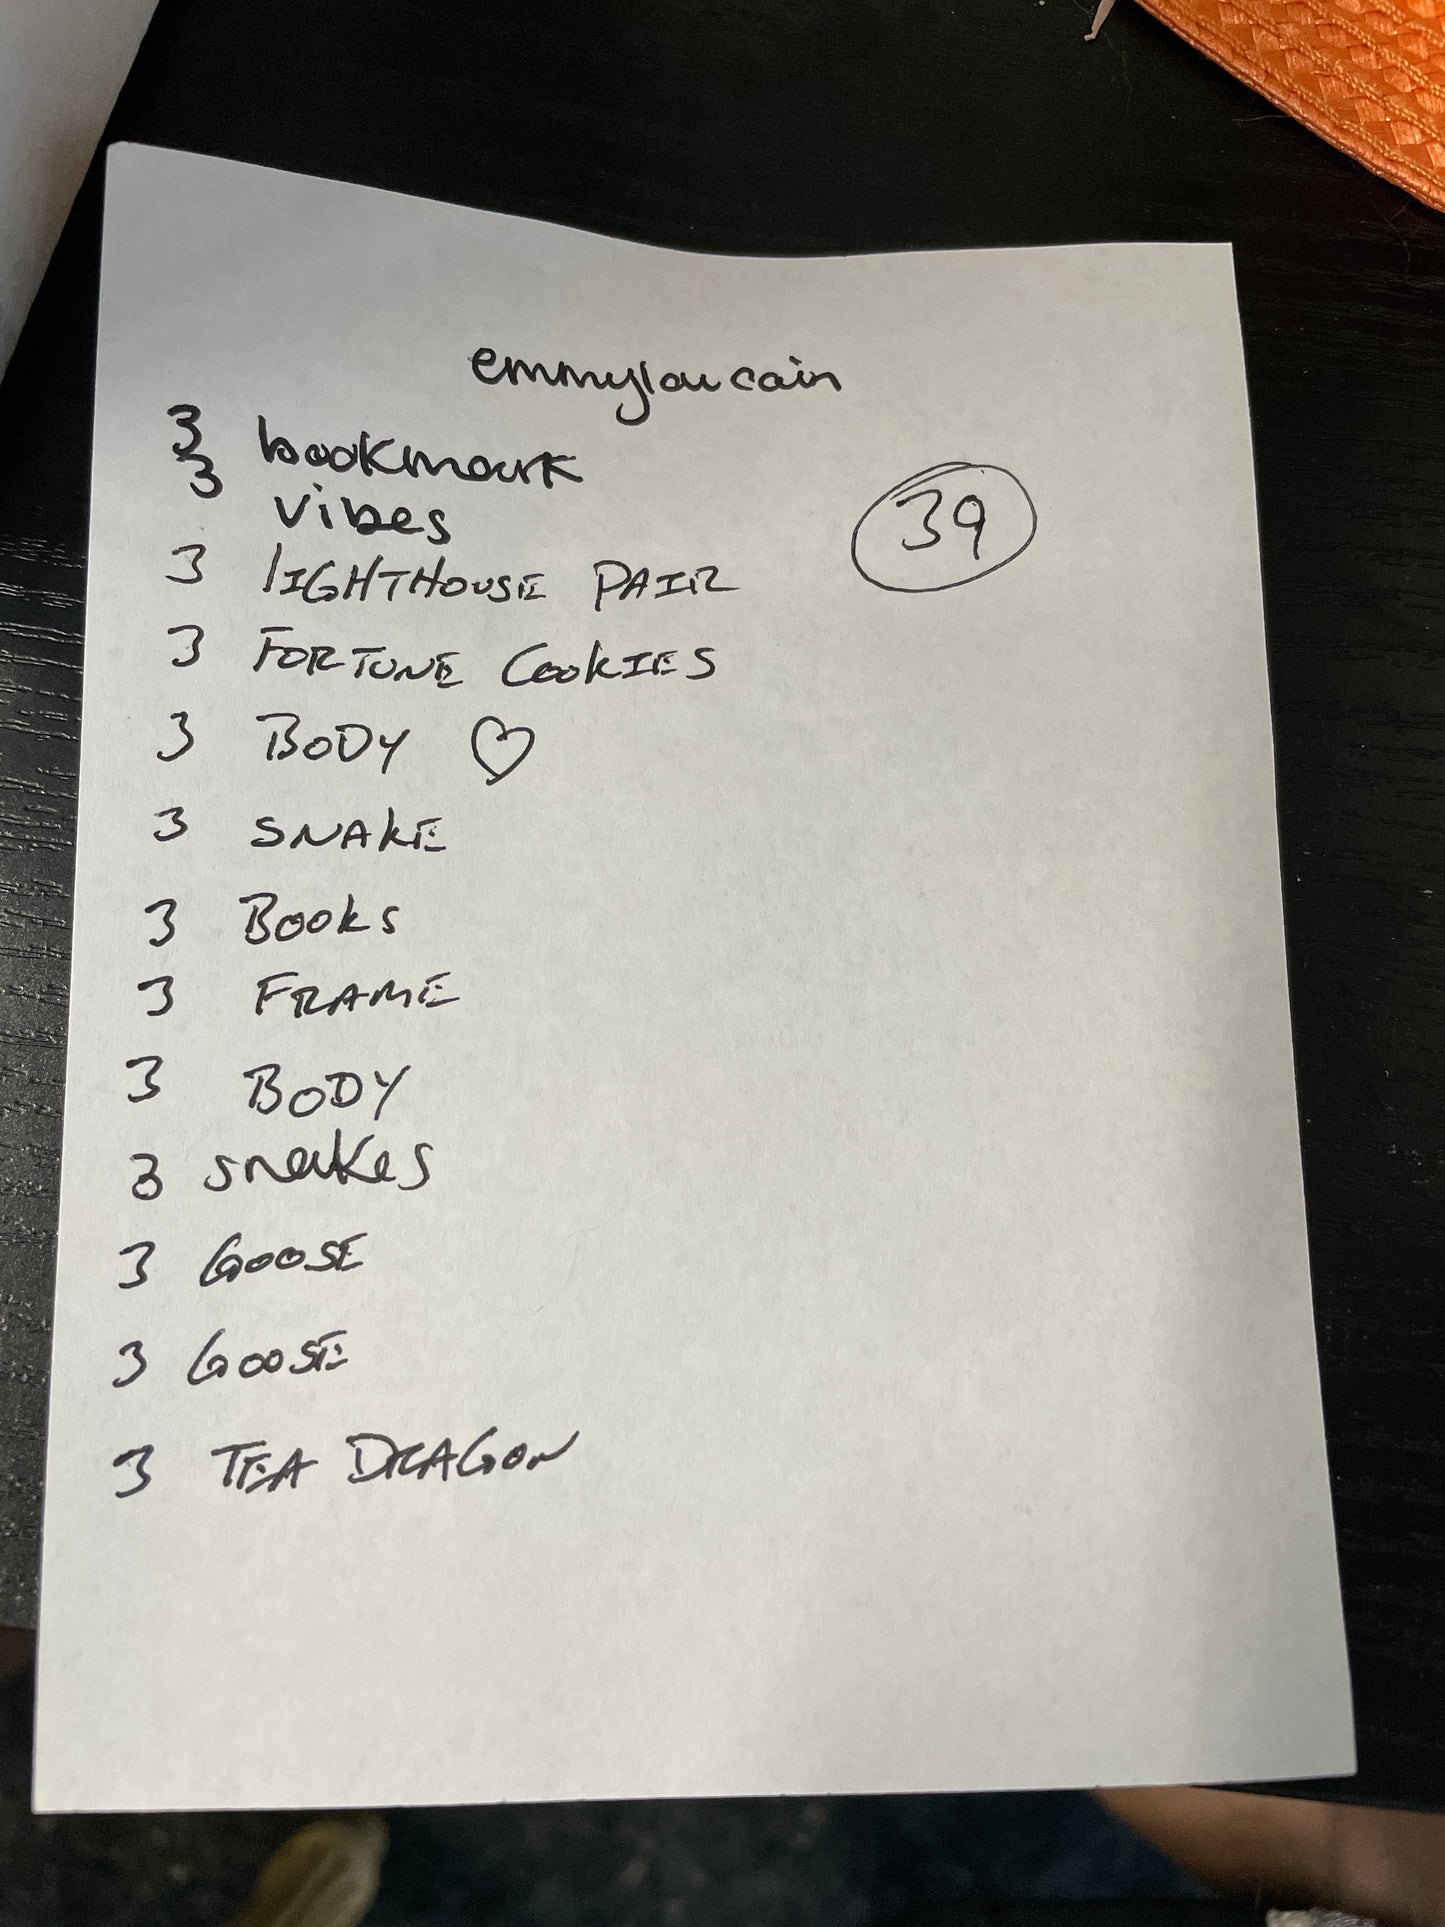 emmyloucain
3 bookmark
3 vibes
39
3 LIGHTHOUSE PAIR
3 FORTUNE COOKIES
3 BODY ♡
3 SNAKE
3 BOOKS
3 FRAME
3 BODY
3 snakes
3 GOOSE
3 GOOSE
3 TEA DRAGON